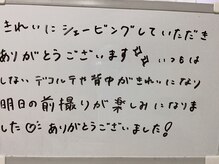 きれいにシェービングしていただき
ありがとうございます いつもは
しないデコルテや背中がきれいになり
明日の前撮りが楽しみになりま
した♡ ありがとうございました!